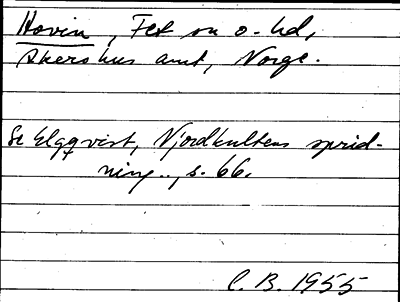 Hovin, Fet sn o. hd,
Akershus amt, Norge.
Se Elgqvist, Njordkultens sprid-
ning.., s. 66.
C. B. 1955